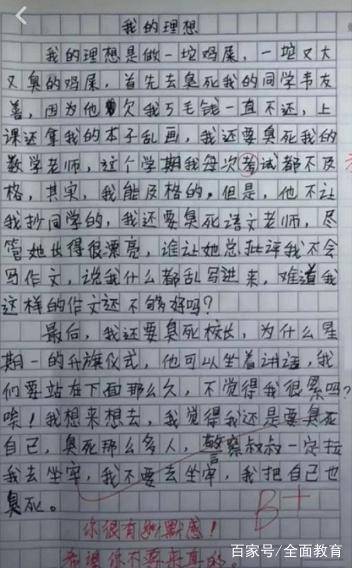 我的理想
我的理想是做一坨鸡屎，一坨又大
又臭的鸡屎，首先去臭死我的同学韦友
善，因为他欠我5毛钱一直不还，上
课还拿我的本子乱画，我还要臭死我的
数学老师，这个学期我每次考试都不及
格，其实，我能及格的，但是，他不让
我抄同学的，我还要臭死语文老师，尽
管她长得很漂亮，谁让她总批评我不会
写作文，说我什么都乱写进来，难道我
这样的作文还不够好吗？
最后，我还要臭死校长，为什么星
期一的升旗仪式，他可以坐着讲话，我
们要站在下面那么久，不觉得我很累吗？
唉！我想来想去，我觉得我还是要臭死
自己，臭死那么多人，警察叔叔一定拉
我去坐牢，我不要去坐牢，我把自己也
臭死。
B+
你很有幽默感！
希望你不要来真的。
百家号/全面教育